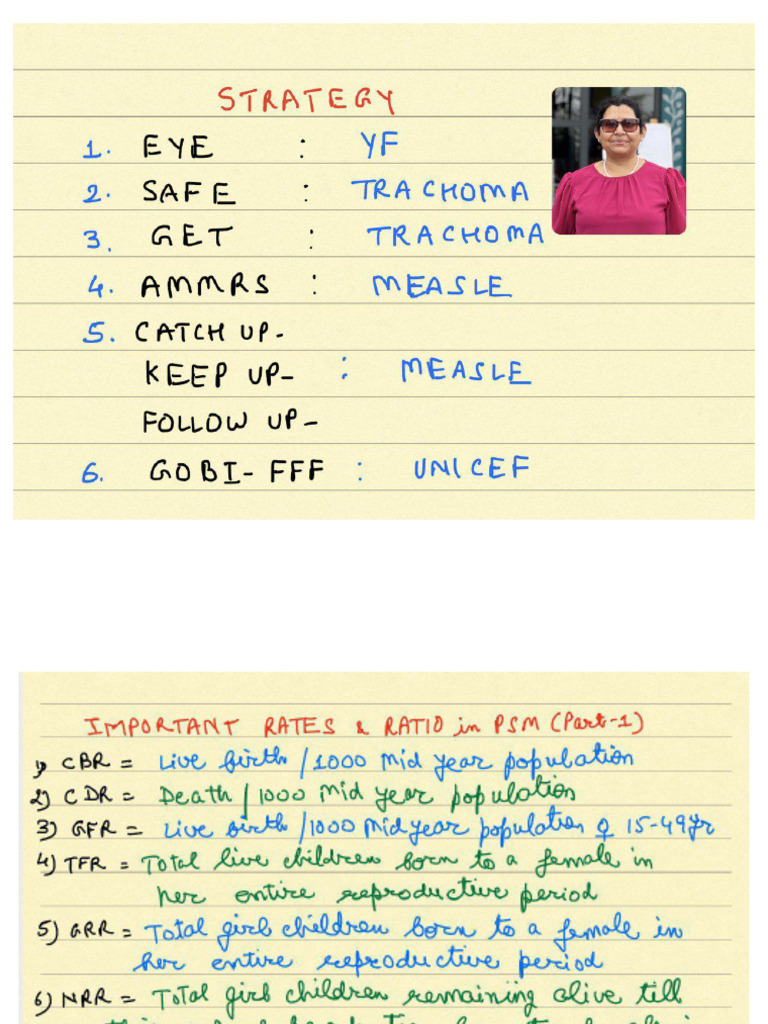 STRATEGY
1. EYE : YF
2. SAFE : TRACHOMA
3. GET : TRACHOMA
4. AMMRS : MEASLE
5. CATCH UP-
KEEP UP- : MEASLE
FOLLOW UP-
6. GOBI- FFF : UNICEF
IMPORTANT RATES & RATIO in PSM (Part-1)
1) CBR = Live birth/1000 Mid year population
2) CDR = Death/1000 mid year population
3) GFR = Live birth/1000 Mid year population ♀ 15-49yr
4) TFR = Total live children born to a female in
her entire reproductive period
5) GRR = Total girl children born to a female in
her entire reproductive period
6) NRR = Total girl children remaining alive till